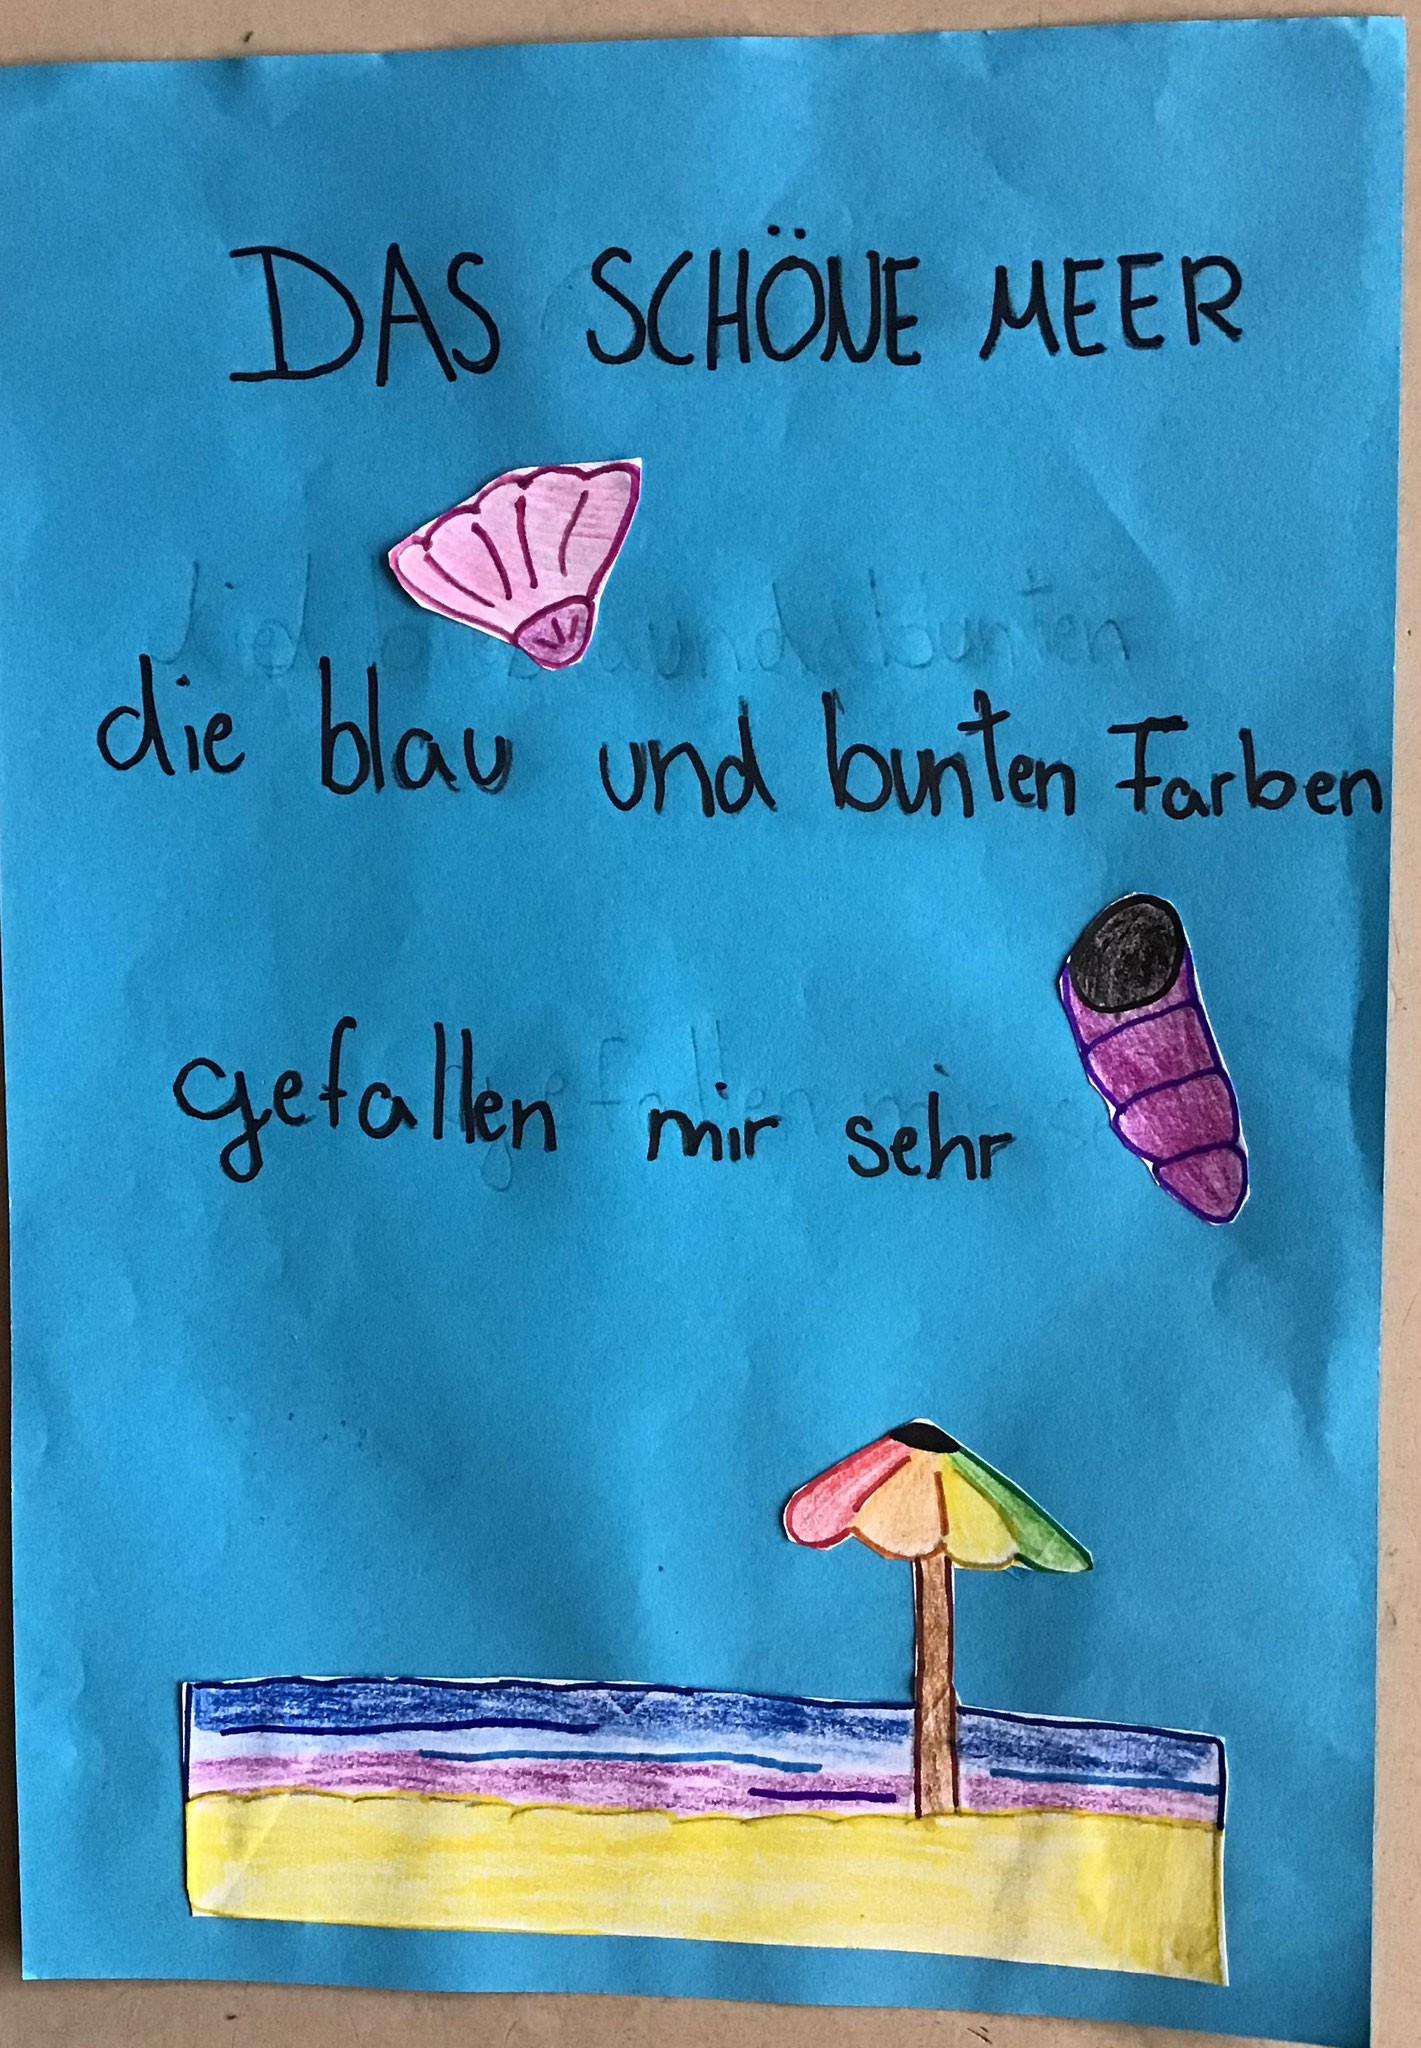 DAS SCHÖNE MEER
die blau und bunten Farben
gefallen mir sehr